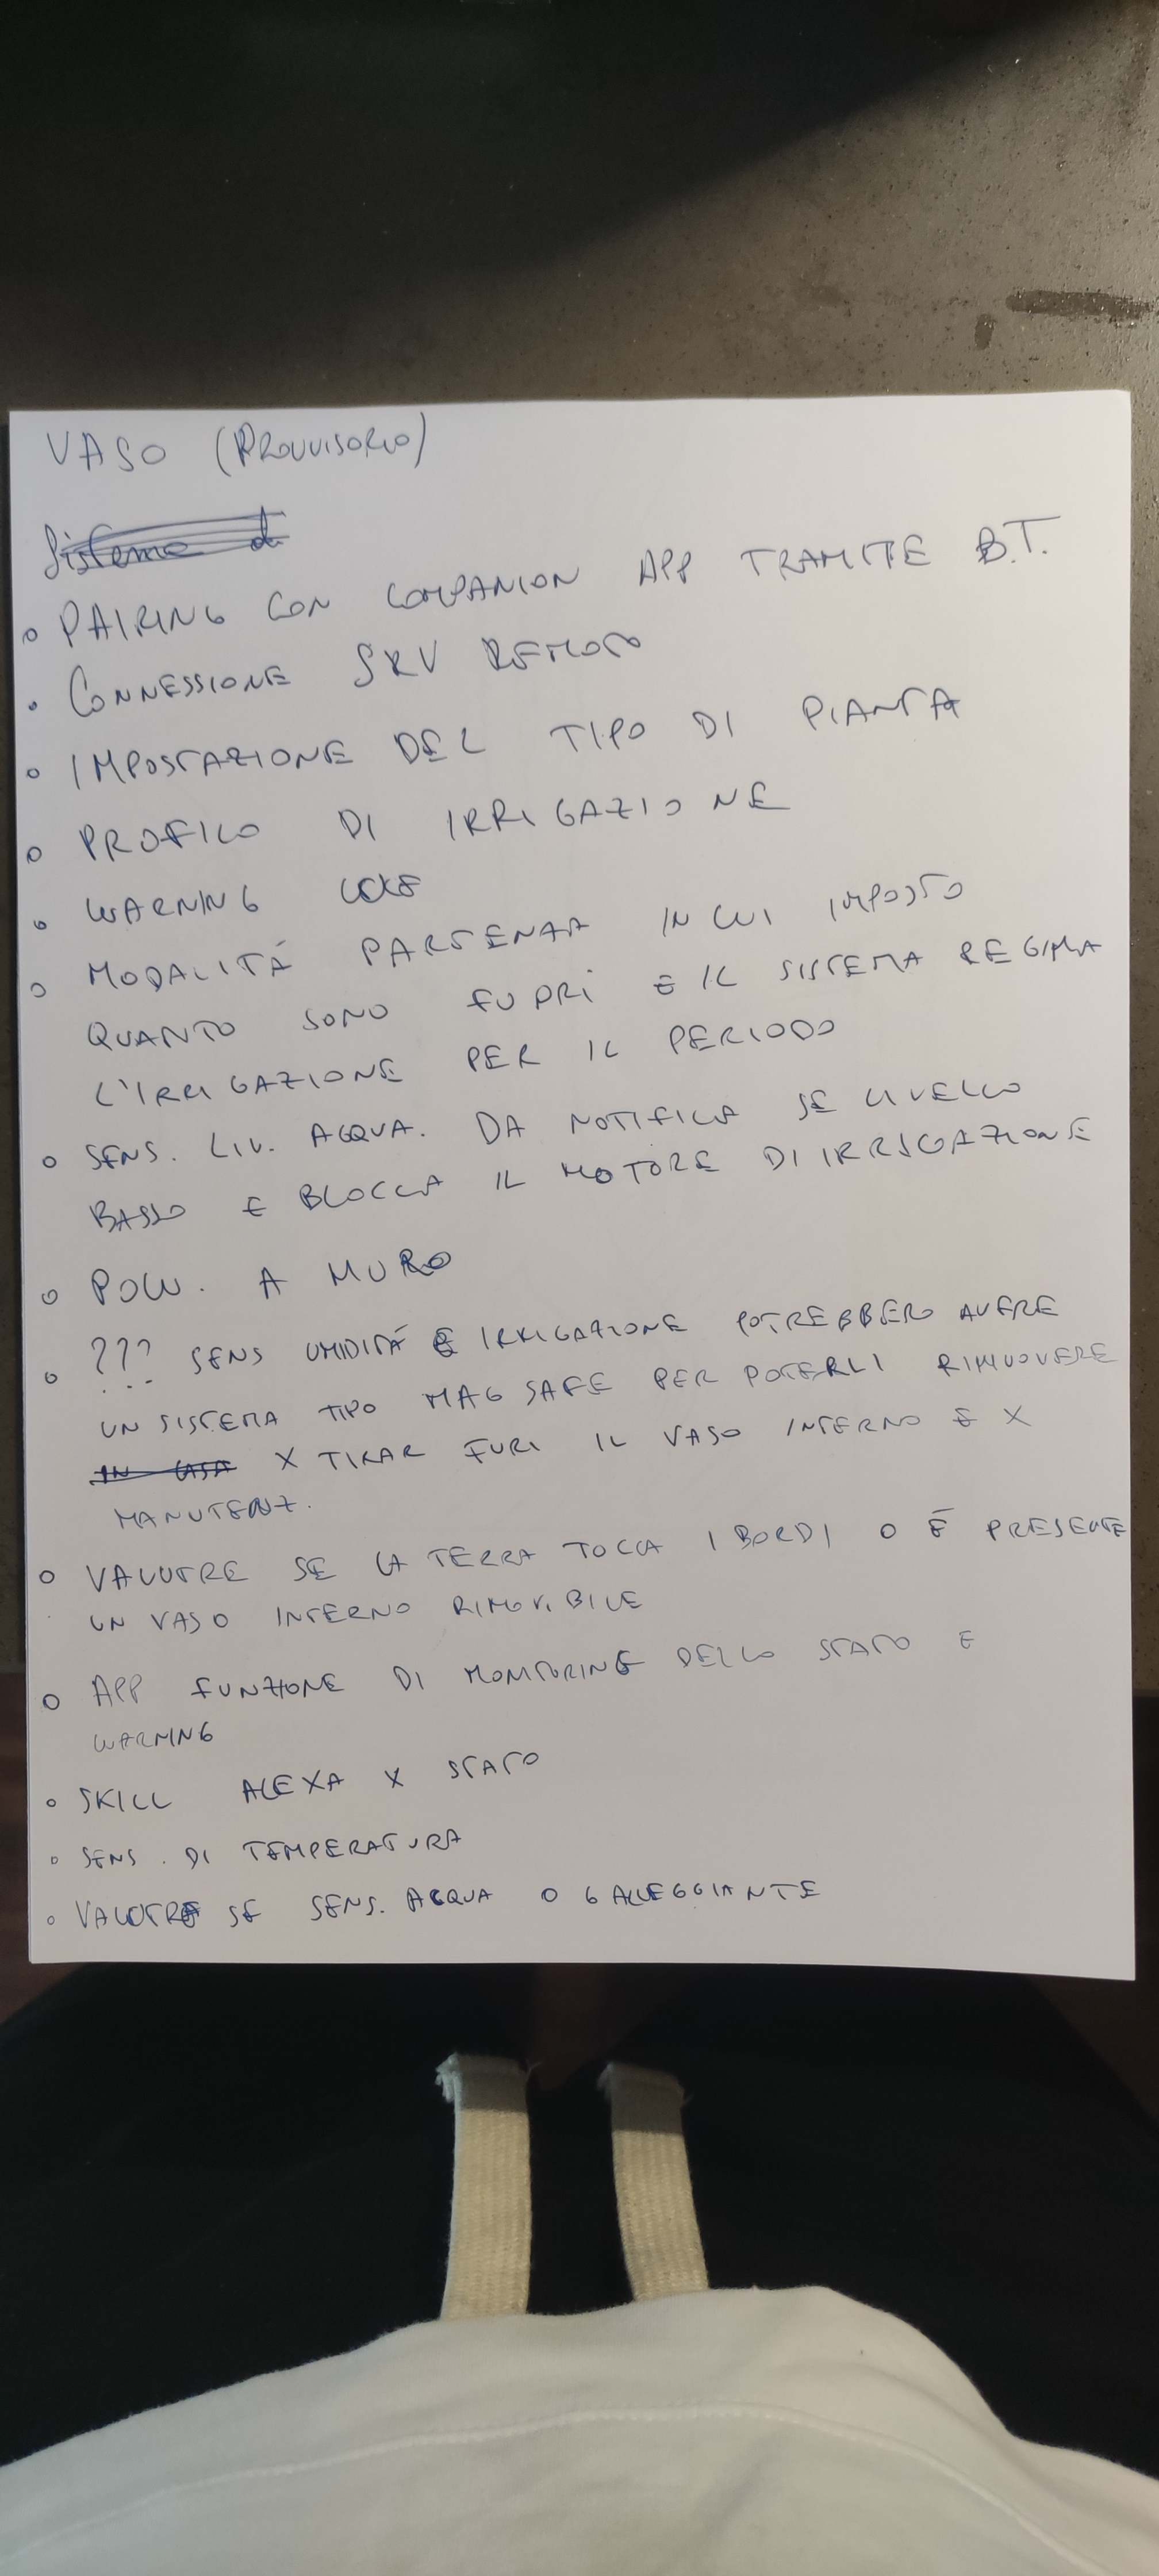 VASO (PROVVISORIO)
• PAIRING CON COMPANION APP TRAMITE B.T.
• CONNESSIONE SRV REMOTO
• IMPOSTAZIONE DEL TIPO DI PIANTA
• PROFILO DI IRRIGAZIONE
• WARNING
• MODALITÁ PARTENZA IN CUI IMPOSTO
QUANTO SONO FUORI E IL SISTEMA REGIMA
L'IRRIGAZIONE PER IL PERIODO
• SENS. LIV. ACQUA. DA NOTIFICA SE LIVELLO
BASSO E BLOCCA IL MOTORE DI IRRIGAZIONE
• POW. A MURO
• ??? SENS UMIDITÁ E IRRIGAZIONE POTREBBERO AVERE
UN SISTEMA TIPO MAG SAFE PER POTERLI RIMUOVERE
X TIRAR FURI IL VASO INTERNO E X
MANUTENZ.
• VALUTRE SE LA TERRA TOCCA I BORDI O É PRESENTE
UN VASO INTERNO RIMOVIBILE
• APP FUNZIONE DI MONITORING DELLO STATO E
WARNING
• SKILL ALEXA X STATO
• SENS. DI TEMPERATURA
• VALUTRE SE SENS. ACQUA O GALLEGGIANTE